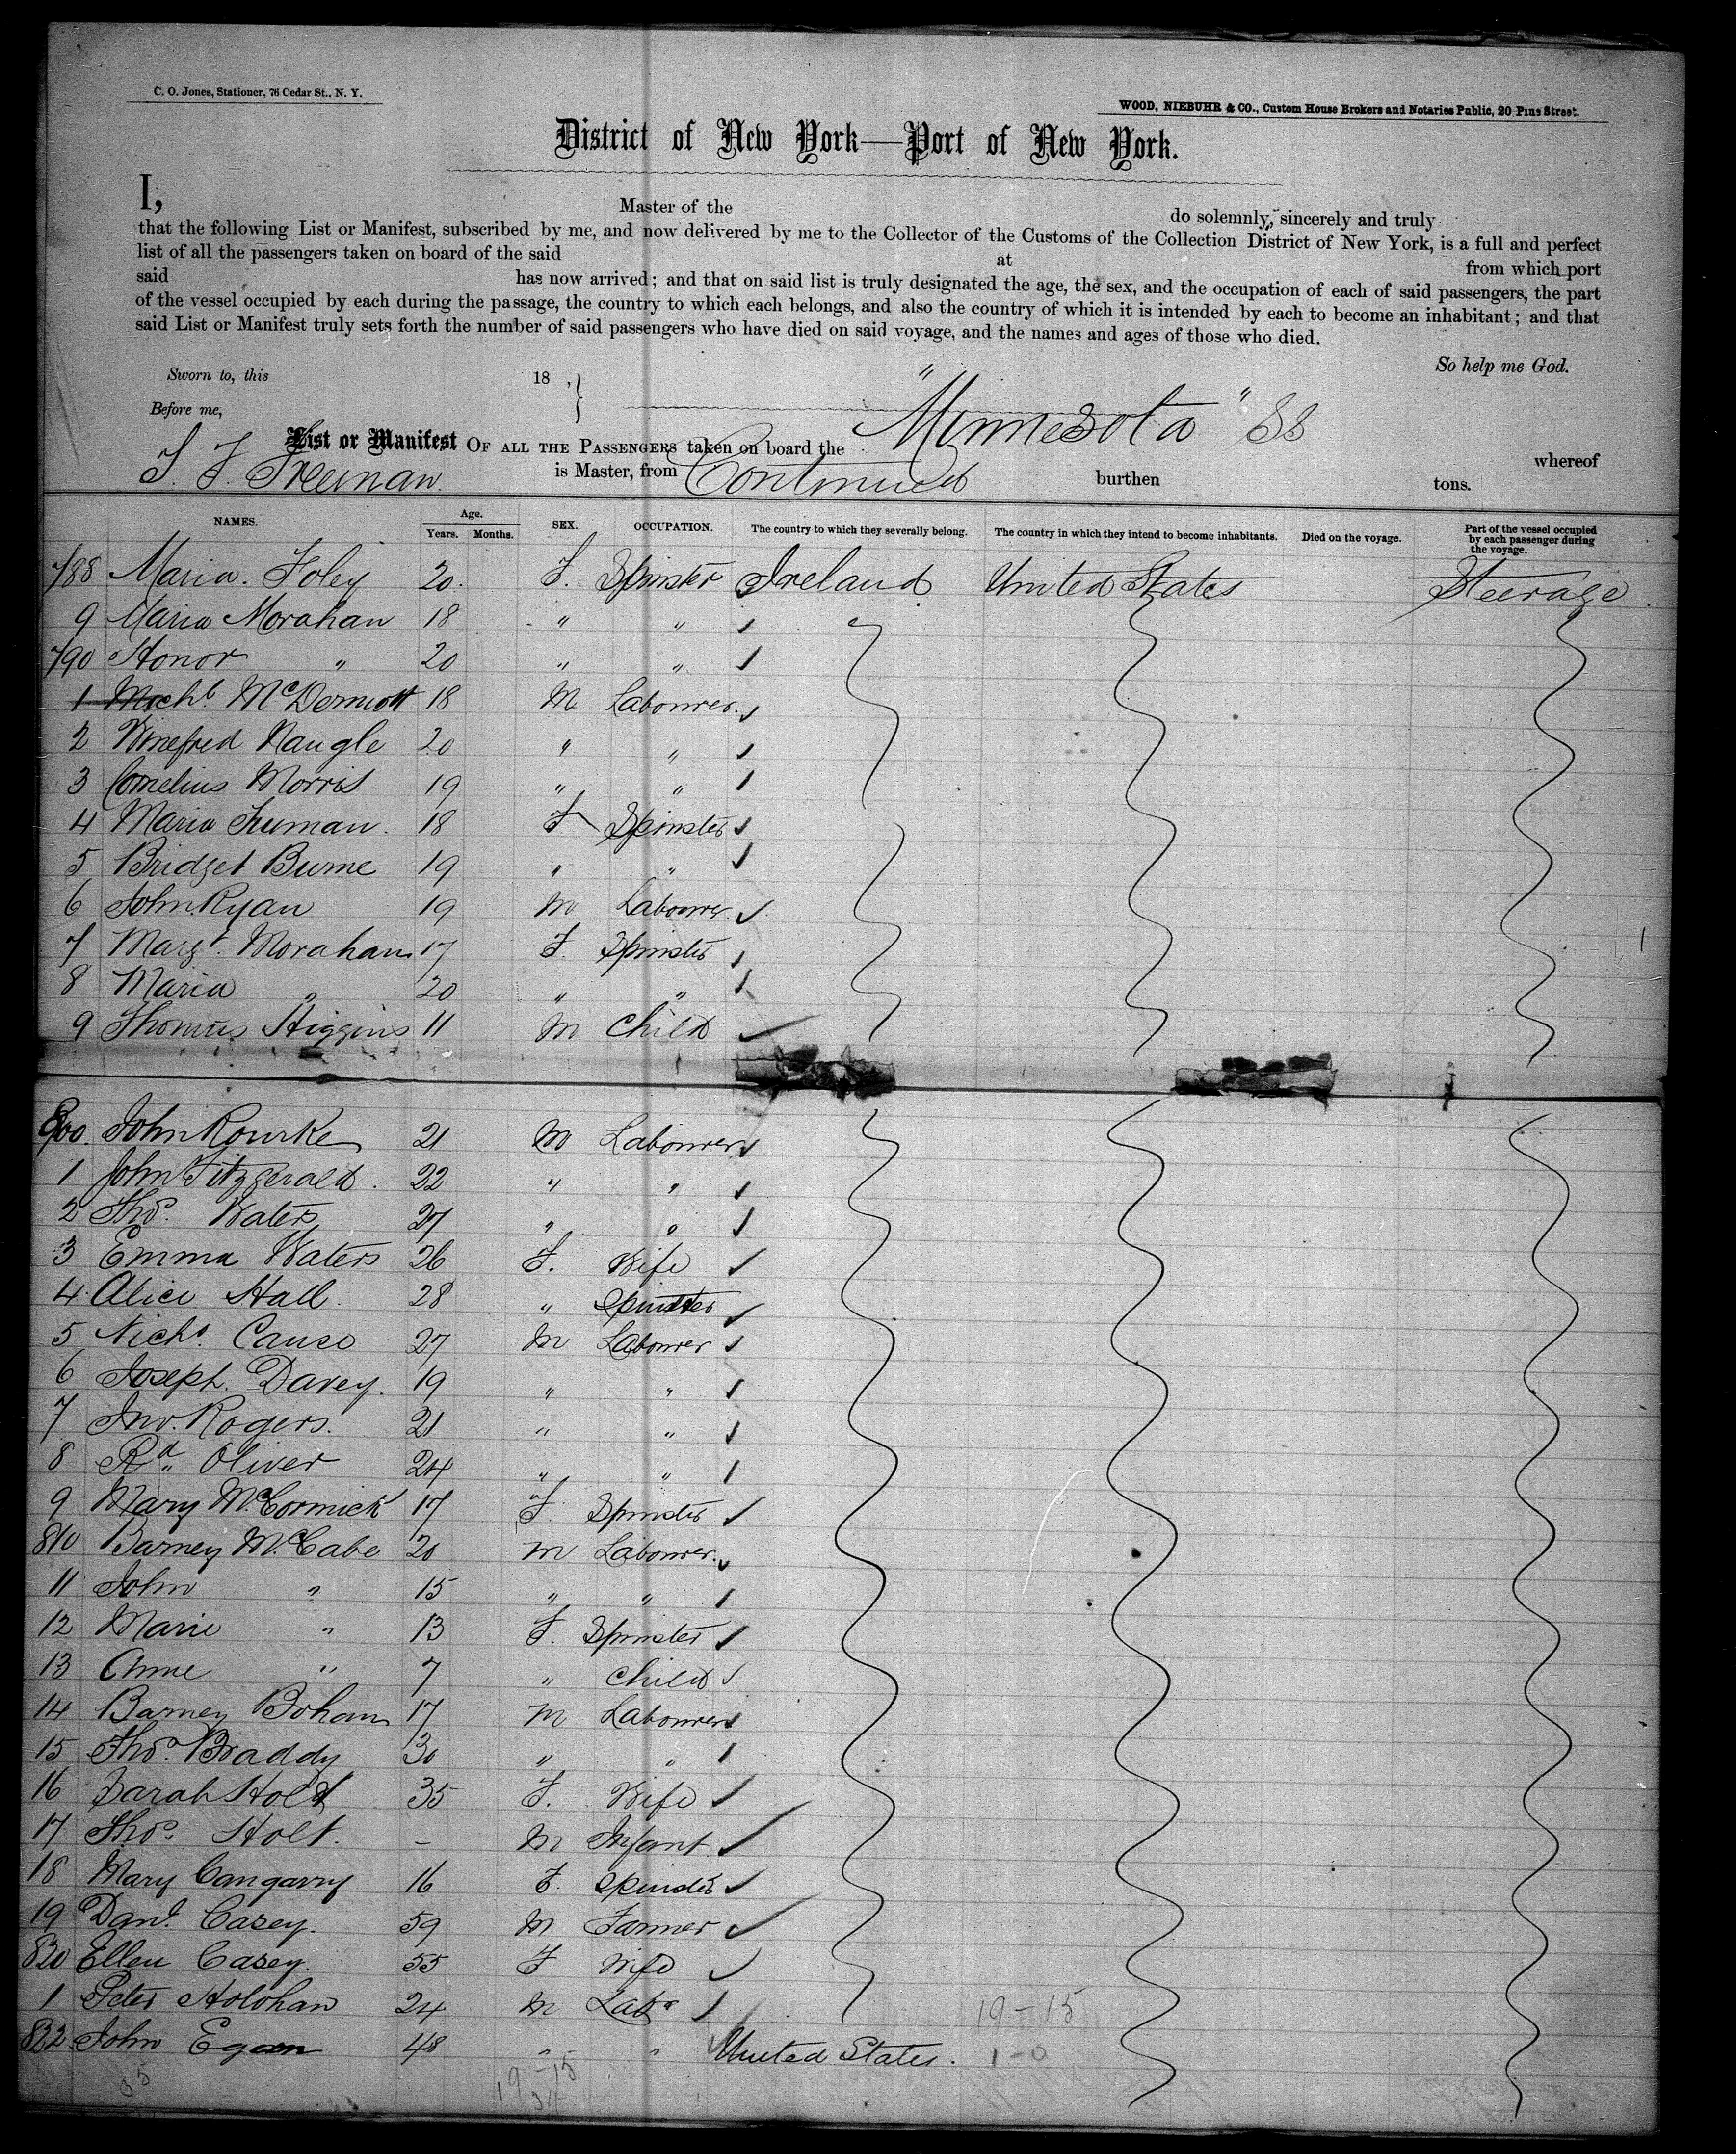 C. O. Jones, Stationer, 76 Cedar St., N. Y.
WOOD, NIEBUHR & CO., Custom House Brokers and Notaries Public, 20 Pine Street.
District of New York—Port of New York.
I, Master of the do solemnly, sincerely and truly
that the following List or Manifest, subscribed by me, and now delivered by me to the Collector of the Customs of the Collection District of New York, is a full and perfect
list of all the passengers taken on board of the said at from which port
said has now arrived; and that on said list is truly designated the age, the sex, and the occupation of each of said passengers, the part
of the vessel occupied by each during the passage, the country to which each belongs, and also the country of which it is intended by each to become an inhabitant; and that
said List or Manifest truly sets forth the number of said passengers who have died on said voyage, and the names and ages of those who died.
So help me God.
Sworn to, this 18 ,
Before me,
List or Manifest OF ALL THE PASSENGERS taken on board the "Minnesota" SS whereof
J. F. Freeman is Master, from Continued burthen tons.
NAMES. Age. Years. Months. SEX. OCCUPATION. The country to which they severally belong. The country in which they intend to become inhabitants. Died on the voyage. Part of the vessel occupied by each passenger during the voyage.
788 Maria Foley 20. F. Spinster Ireland United States Steerage
9 Maria Morahan 18 " "
790 Honor " 20 " "
1 Michl McDermott 18 M Labourer
2 Winefred Naugle 20 " "
3 Cornelius Morris 19 " "
4 Maria 18 F Spinster
5 Bridget Burne 19 " "
6 John Ryan 19 M Labourer
7 Margt Morahan 17 F. Spinster
8 Maria " 20 " "
9 Thomas Higgins 11 M Child
800. John Rourke 21 M Labourer
1 John Fitzgerald. 22 " "
2 Thos. Waters 27 " "
3 Emma Waters 26 F. Wife
4 Alice Hall. 28 " Spinster
5 Nichs. Cause 27 M Labourer
6 Joseph Davey. 19 " "
7 Jno. Rogers. 21 " "
8 Rd Oliver 24 " "
9 Mary McCormick 17 F. Spinster
810 Barney McCabe 20 M Labourer
11 John " 15 " "
12 Marie " 13 F. Spinster
13 Anne " 7 " Child
14 Barney Bohan 17 M Labourer
15 Thos. Braddy 30 " "
16 Sarah Holt 35 F. Wife
17 Thos. Holt. – M Infant
18 Mary Cangarry 16 F. Spinster
19 Danl. Casey. 59 M Farmer
820 Ellen Casey. 55 F Wife
1 Peter Holohan 24 M Labr 19-15
822 John Egan 48 " " United States. 1-0
35 19-15
34